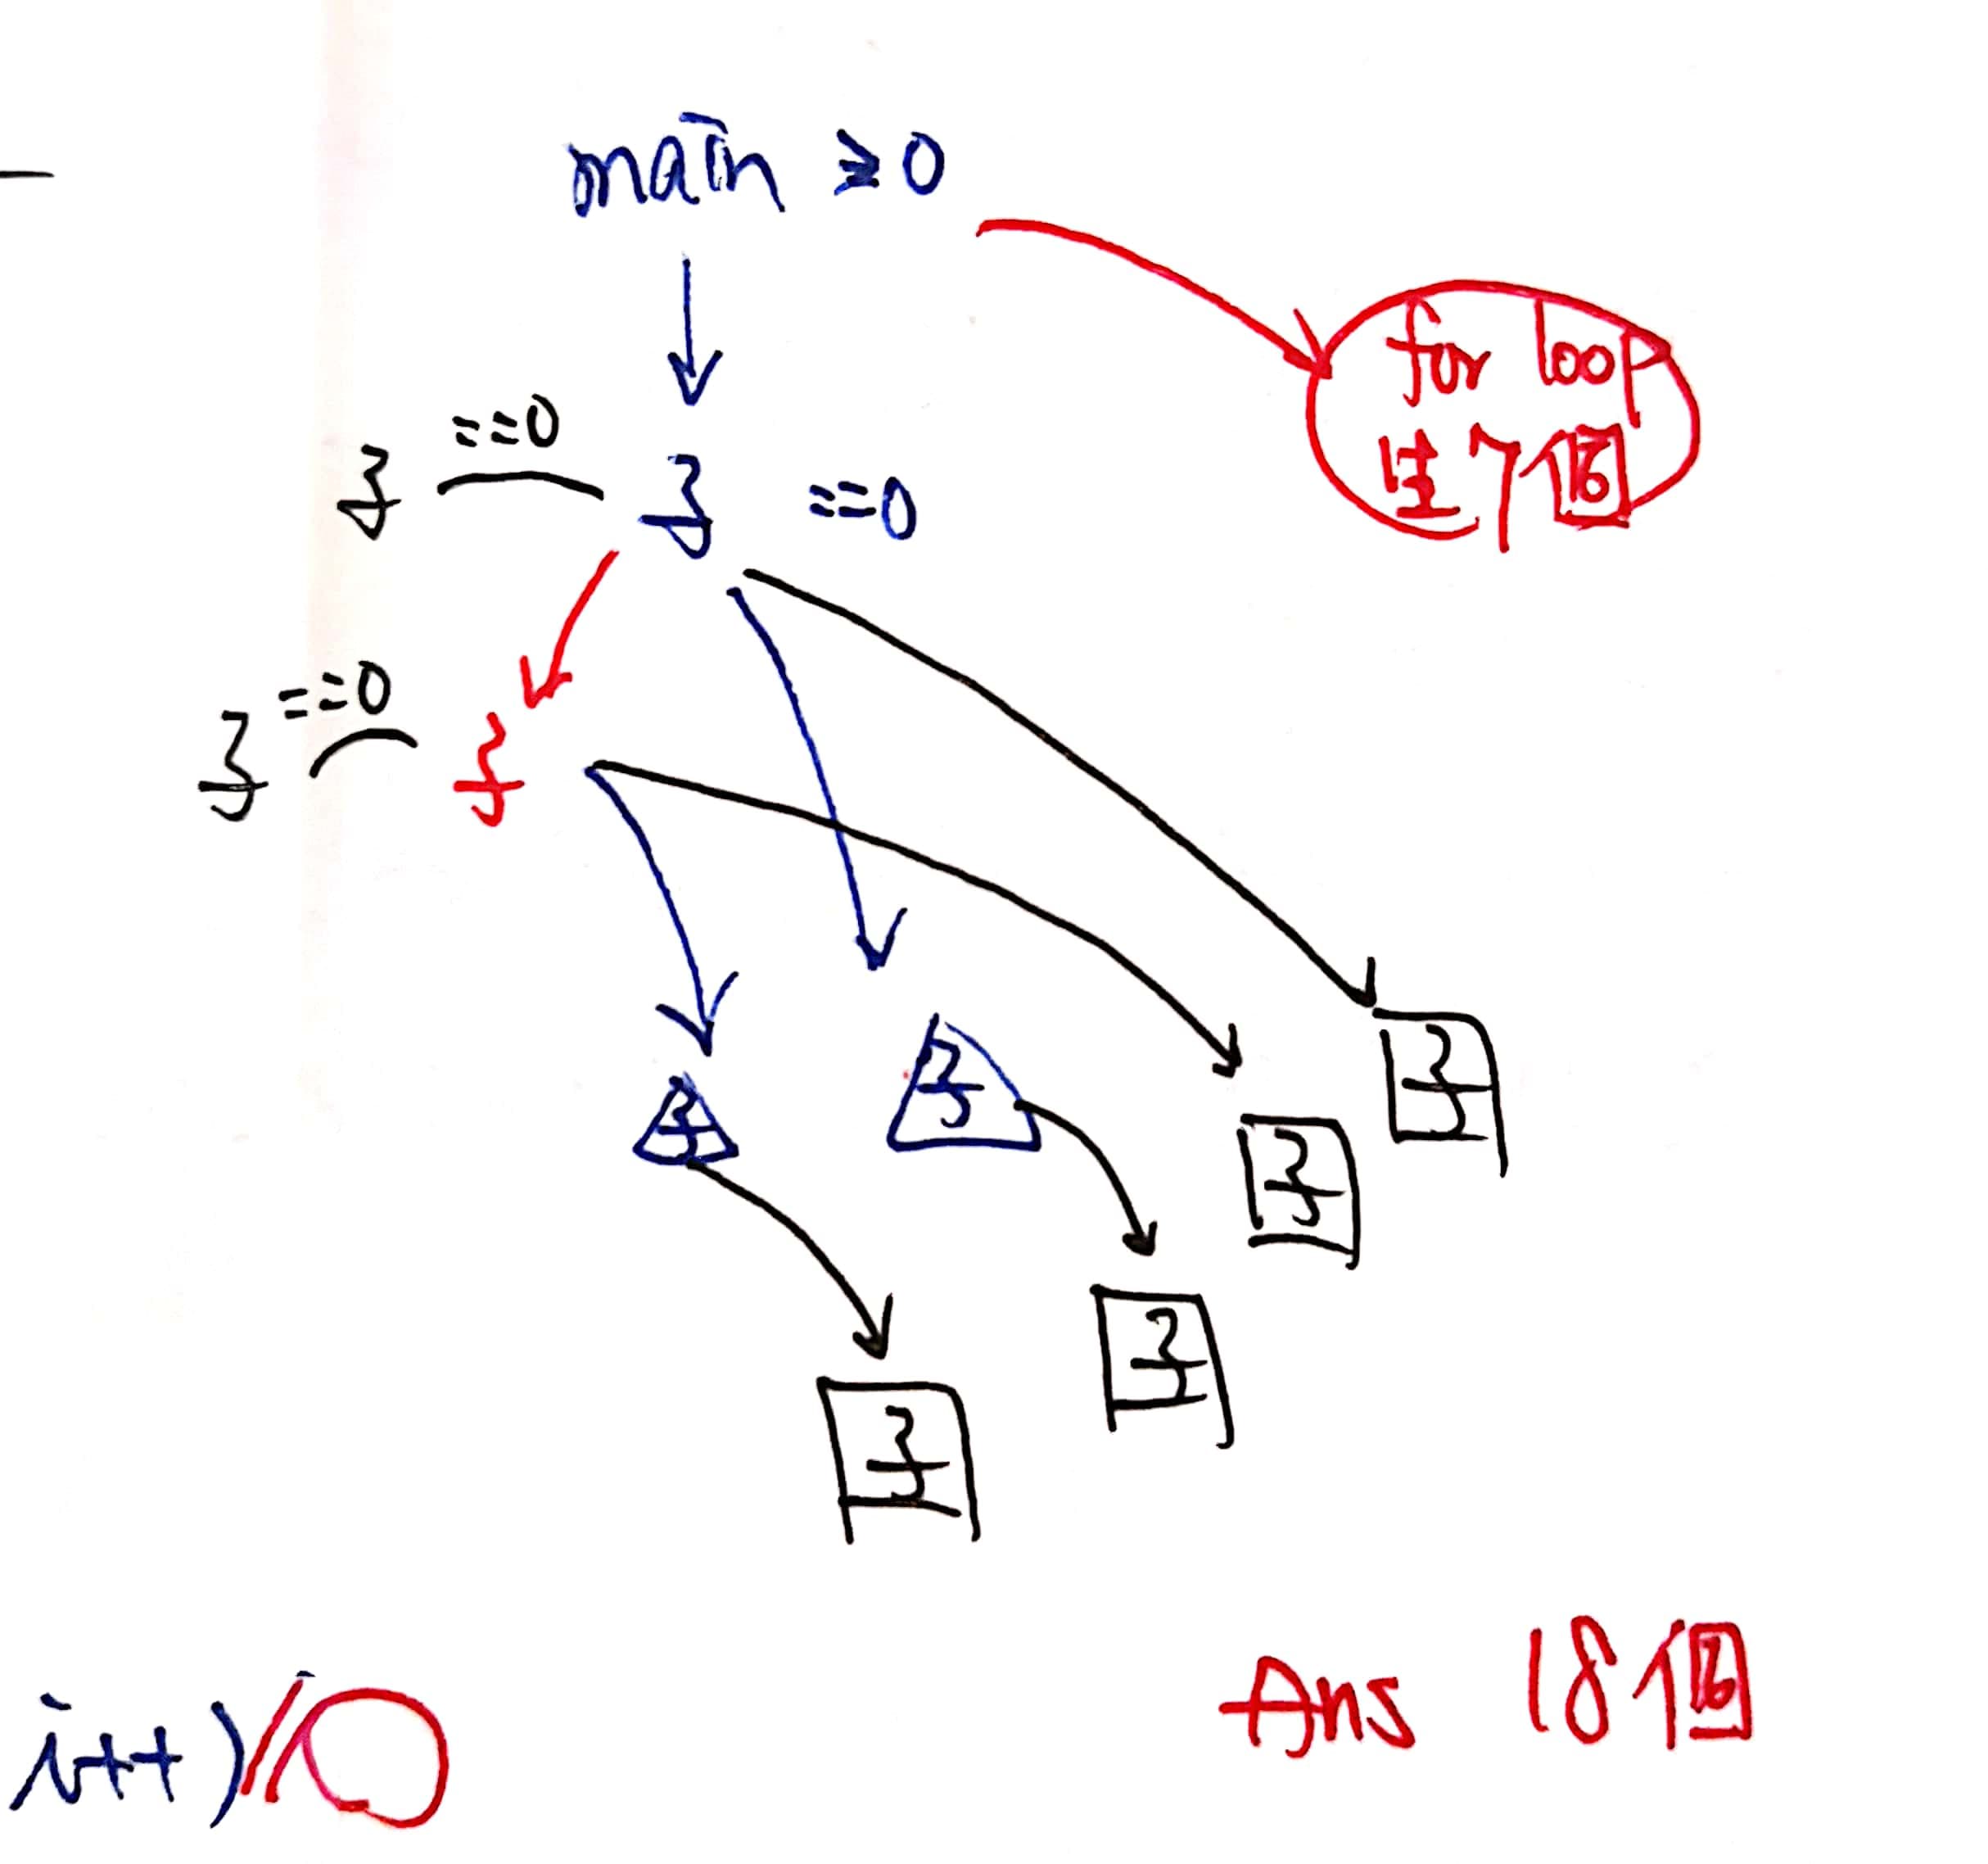 main ≥0
for loop
生7個
==0
子 子 ==0
==0
子 子
子
子
子
子
子
子
Ans 18個
i++)